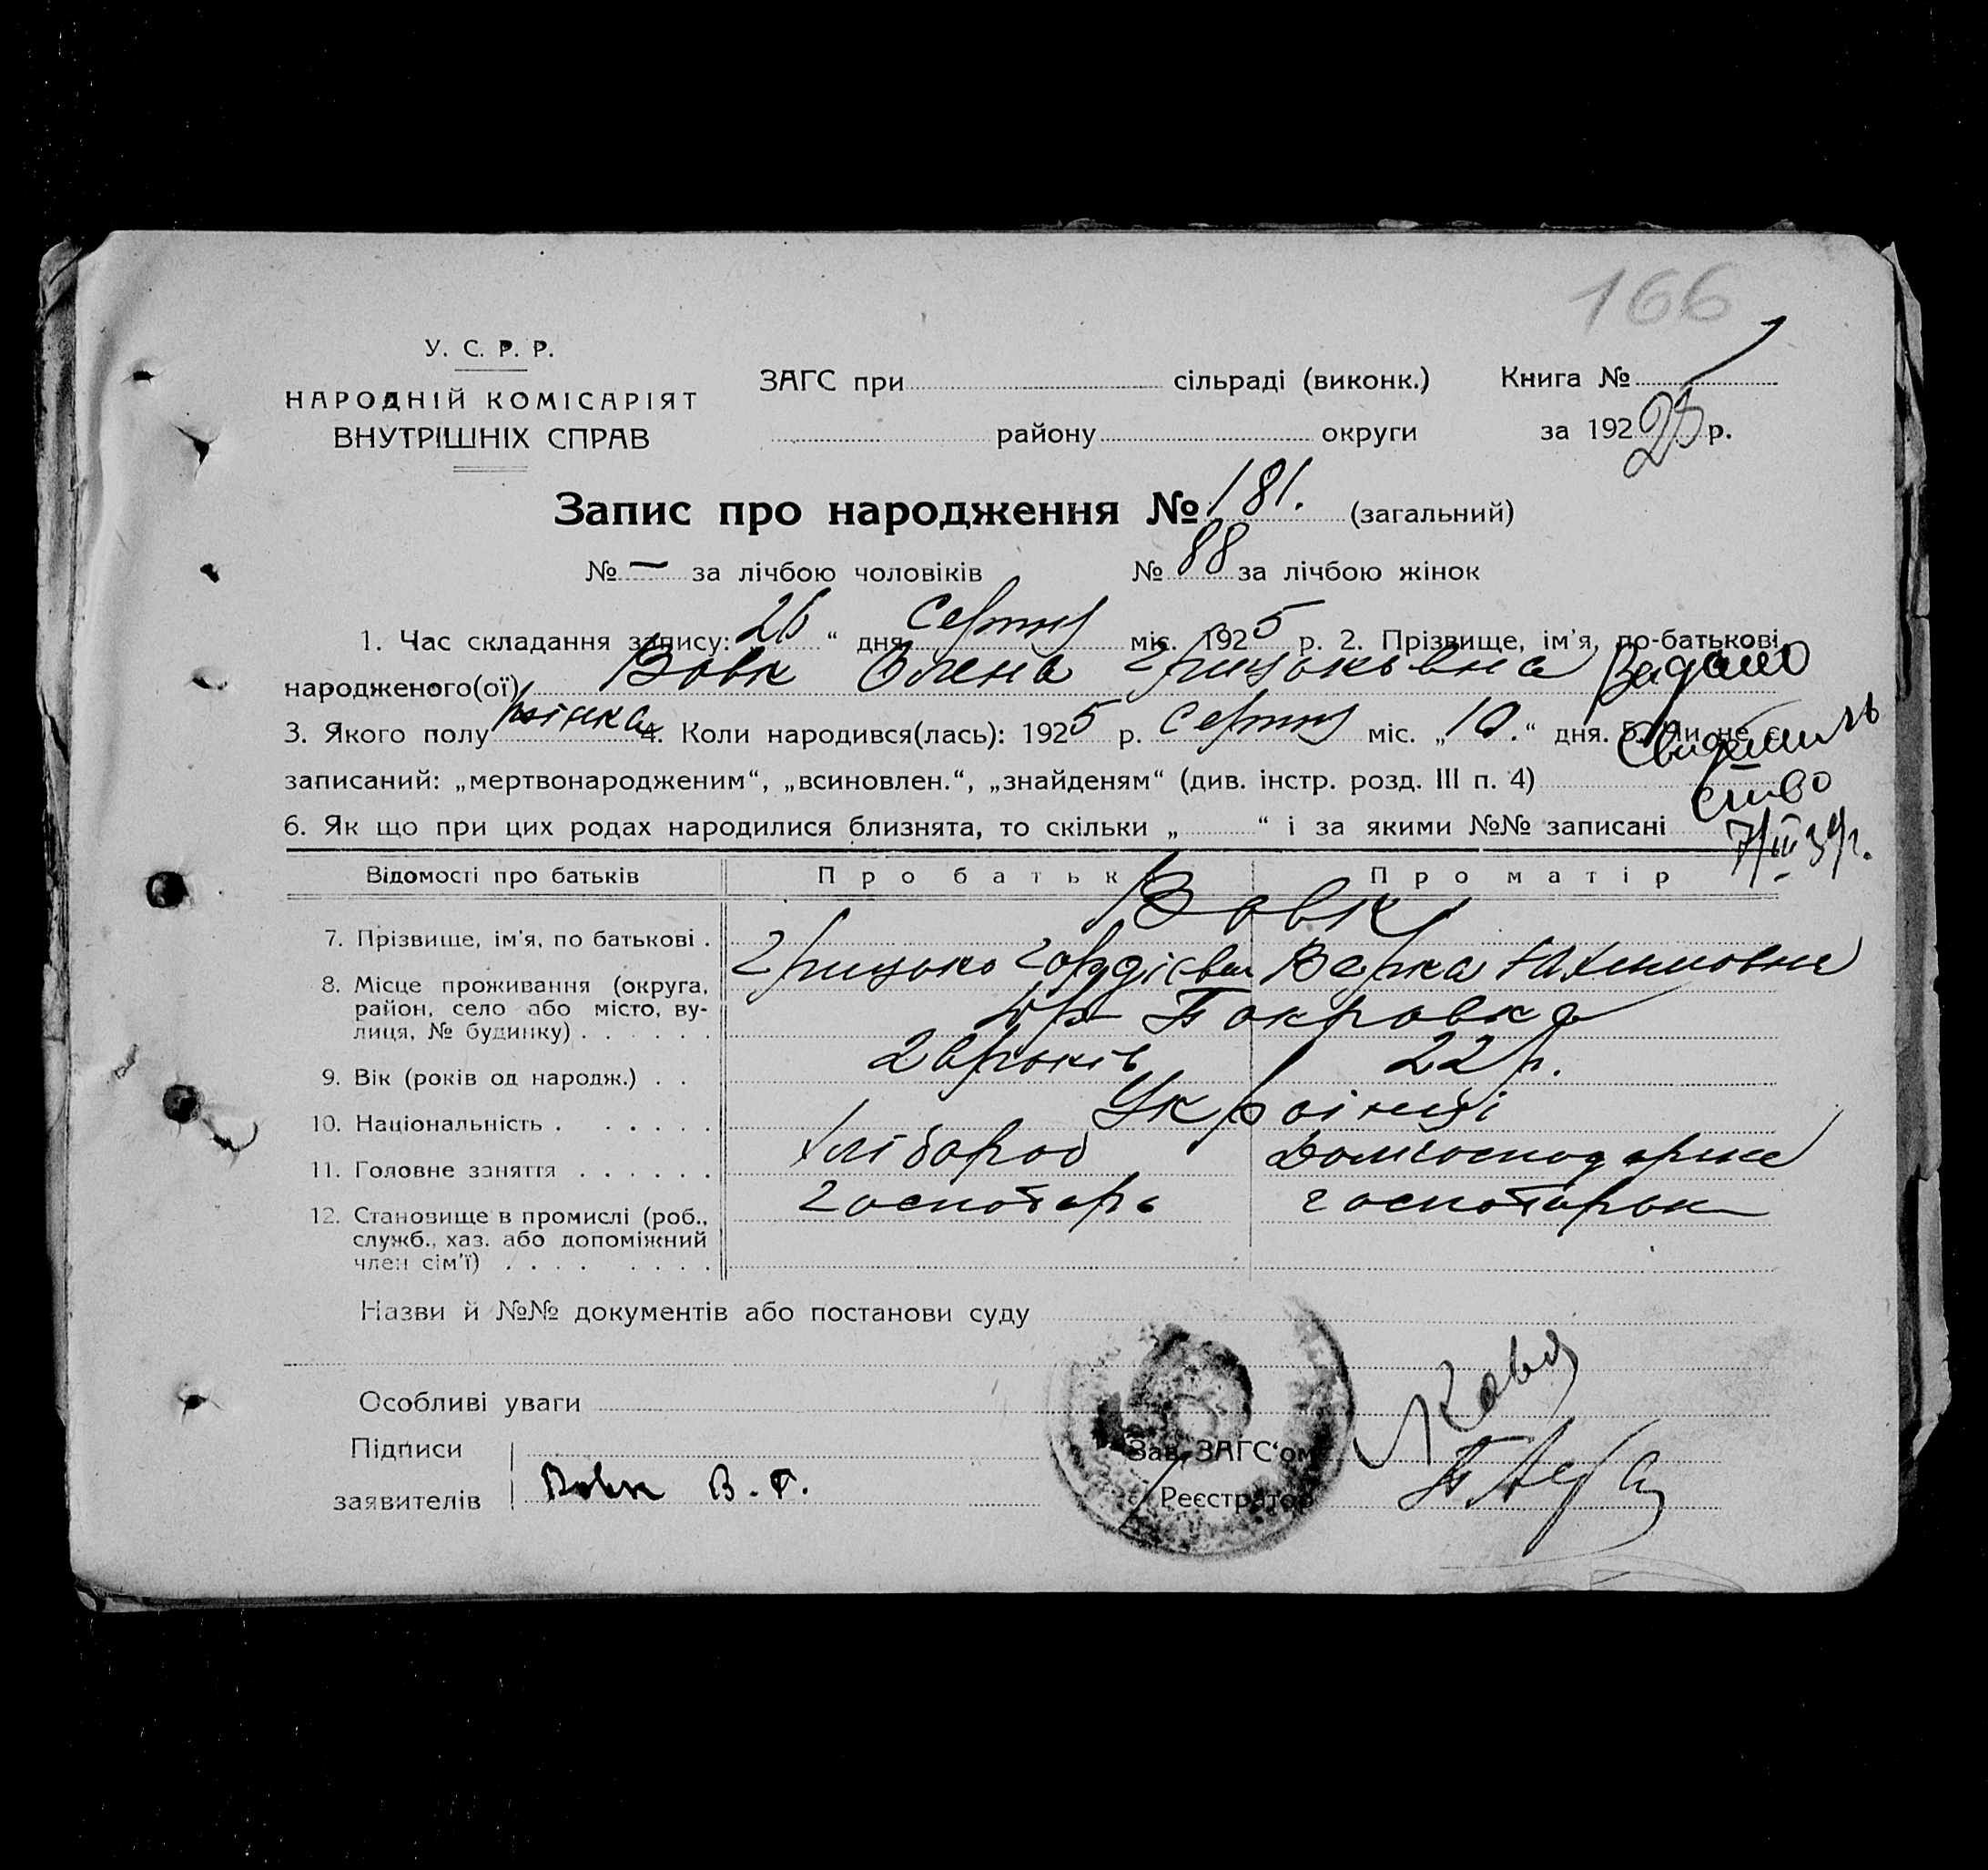 166
У. С. Р. Р.
НАРОДНІЙ КОМІСАРІЯТ
ВНУТРІШНІХ СПРАВ
ЗАГС при сільраді (виконк.)
району округи
Книга №
за 192 25 р.
Запис про народження № 181. (загальний)
№ — за лічбою чоловіків № 88 за лічбою жінок
1. Час складання запису: 26 “ дня Серпня міс. 1925 р. 2. Прізвище, ім'я, по-батькові
народженого(ої) Вовк Олена Грицьковна
Видано
3. Якого полу жінка 4. Коли народився(лась): 1925 р. Серпня міс. „10.“ дня. 5. Чи не є
свидетель
записаний: „мертвонародженим“, „всиновлен.“, „знайденям“ (див. інстр. розд. III п. 4)
ство
6. Як що при цих родах народилися близнята, то скільки „ “ і за якими №№ записані
7/III 39г.
Відомості про батьків Про батька Про матір
Вовк
7. Прізвище, ім'я, по батькові .
Грицько Гордієв Варка
8. Місце проживання (округа,
район, село або місто, ву-
лиця, № будинку) . . . . . .
Покровка
9. Вік (років од народж.) . . років 22 р.
10. Національність . . . . . . Українці
11. Головне заняття . . . . . . Хлібороб Домгосподарка
12. Становище в промислі (роб.,
служб., хаз. або допоміжний
член сім'ї) . . . . . . . .
господарь
Назви й №№ документів або постанови суду
Особливі уваги
Підписи
заявителів Вовк В. Г.
Зав. ЗАГС‘ом
Реєстратор